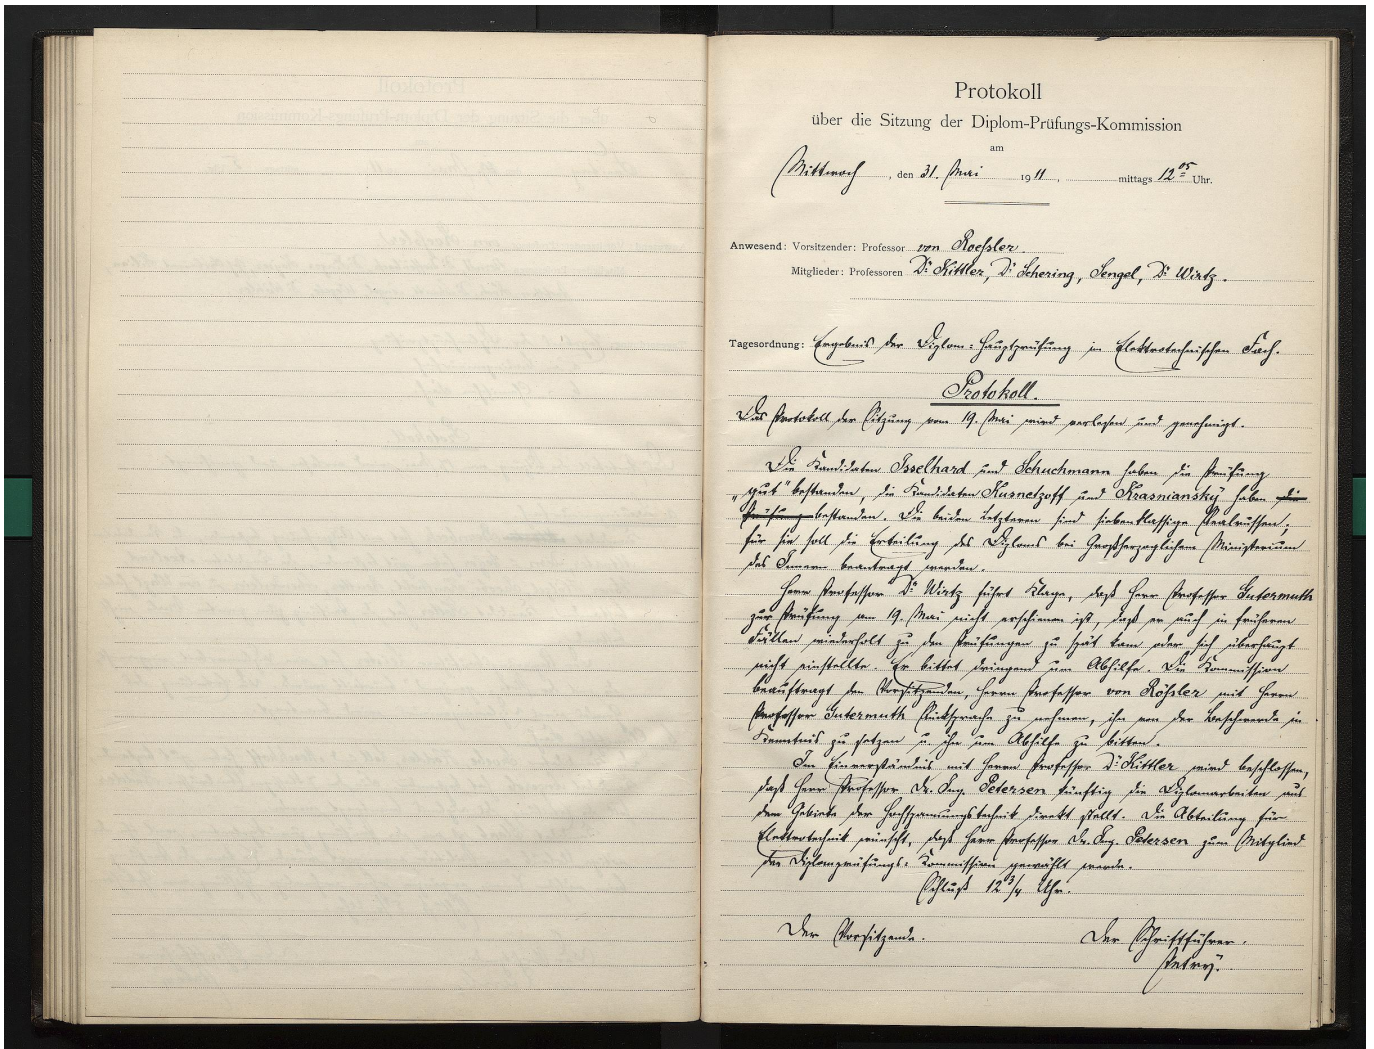 Protokoll
über die Sitzung der Diplom-Prüfungs-Kommission
am
Mittwoch, den 31. Mai 1911, mittags 12 05 Uhr.
Anwesend: Vorsitzender: Professor von Roeßler.
Mitglieder: Professoren Dr. Kittler, Dr. Schering, Sengel, Dr. Wirtz.
Tagesordnung: Ergebnis der Diplom-Hauptprüfung im Elektrotechnischen Fach.
Protokoll.
Das Protokoll der Sitzung vom 19. Mai wird verlesen und genehmigt.
Die Kandidaten Isselhard und Schuchmann haben die Prüfung
„gut" bestanden, die Kandidaten Kusnetzoff und Krasnianský haben die
Prüfung bestanden. Die beiden Letzteren sind siebenklassige Realrussen;
für sie soll die Erteilung des Diploms bei Großherzoglichem Ministerium
des Innern beantragt werden.
Herr Professor Dr. Wirtz führt Klage, daß Herr Professor Gutermuth
zur Prüfung am 19. Mai nicht erschienen ist, daß er auch in früheren
Fällen wiederholt zu den Prüfungen zu spät kam oder sich überhaupt
nicht einstellte. Er bittet dringend um Abhilfe. Die Kommission
beauftragt den Vorsitzenden, Herrn Professor von Rößler mit Herrn
Professor Gutermuth Rücksprache zu nehmen, ihn von der Beschwerde in
Kenntnis zu setzen u. ihn um Abhilfe zu bitten.
Im Einverständnis mit Herrn Professor Dr. Kittler wird beschlossen,
daß Herr Professor Dr. Ing. Petersen künftig die Diplomarbeiten aus
dem Gebiete der Hochspannungstechnik direkt stellt. Die Abteilung für
Elektrotechnik wünscht, daß Herr Professor Dr. Ing. Petersen zum Mitglied
der Diplomprüfungs-Kommission gewählt werde.
Schluß 12 3/4 Uhr.
Der Vorsitzende. Der Schriftführer.
Petry.